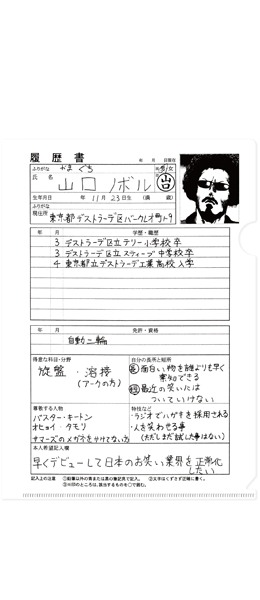 履歴書
年 月 日現在
ふりがな やま ぐち
男・女
氏名 山口ノボル ㊞
生年月日 年 11月23日生 (満 歳)
ふりがな
現住所 東京都デストラーデ区バークレオ町トッ9
年 月 学歴・職歴
3 デストラーデ区立テリー小学校卒
3 デストラーデ区立スティーブ中学校卒
4 東京都立デストラーデ工業高校入学
年 月 免許・資格
自動二輪
得意な科目・分野
旋盤・溶接
(アークの方)
自分の長所と短所
長 面白い物を誰よりも早く
察知できる
短 最近の笑いには
ついていけない
尊敬する人物
バスター・キートン
オヒョイ・タモリ
サマーズのメガネをかけてない方
特技など
・ラジオでハガキを採用される
・人を笑わせる事
(ただしまだ試した事はない)
本人希望記入欄
早くデビューして日本のお笑い業界を正常化
したい
記入上の注意 ①鉛筆以外の青または黒の筆記具で記入。 ②文字はくずさず正確に書く。
③※印のところは、該当するものを○で囲む。